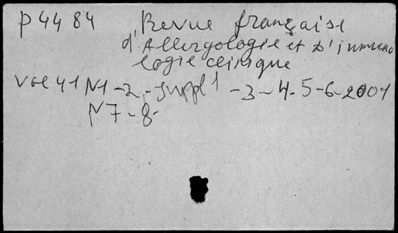 P 4484 Revue française
d'Allergologie et d'immuno
logie clinique
Vol 41 N1-2-suppl1-3-4-5-6-2001
N7-8-